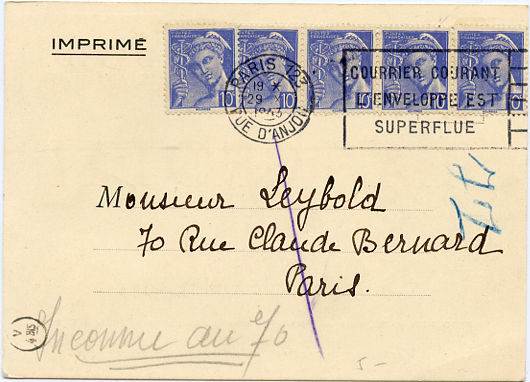 IMPRIMÉ
10 10 10 10 10
PARIS 123
19 X
29 X
RUE D'ANJOU
COURRIER COURANT
L'ENVELOPPE EST
SUPERFLUE
Monsieur Leybold
70 Rue Claude Bernard
Paris.
Inconnu au 70
V
5-